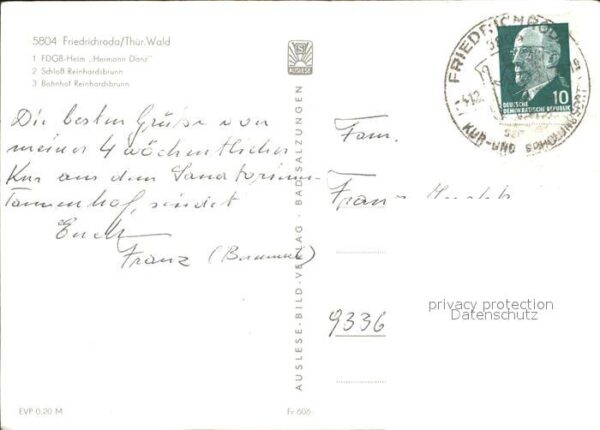 5804 Friedrichroda/Thür. Wald
1 FDGB-Heim „Hermann Danz"
2 Schloß Reinhardsbrunn
3 Bahnhof Reinhardsbrunn
AUSLESE
Die besten Grüße von
meiner 4 wöchentlichen
Kur aus dem Sanatorium
Tannenhof, sendet
Euch
Franz
EVP 0,20 M
AUSLESE-BILD-VERLAG · BAD SALZUNGEN
Fr 606
FRIEDRICHRODA
KUR-UND
DEUTSCHE
DEMOKRATISCHE REPUBLIK
10
Fam.
Franz
9336
privacy protection
Datenschutz